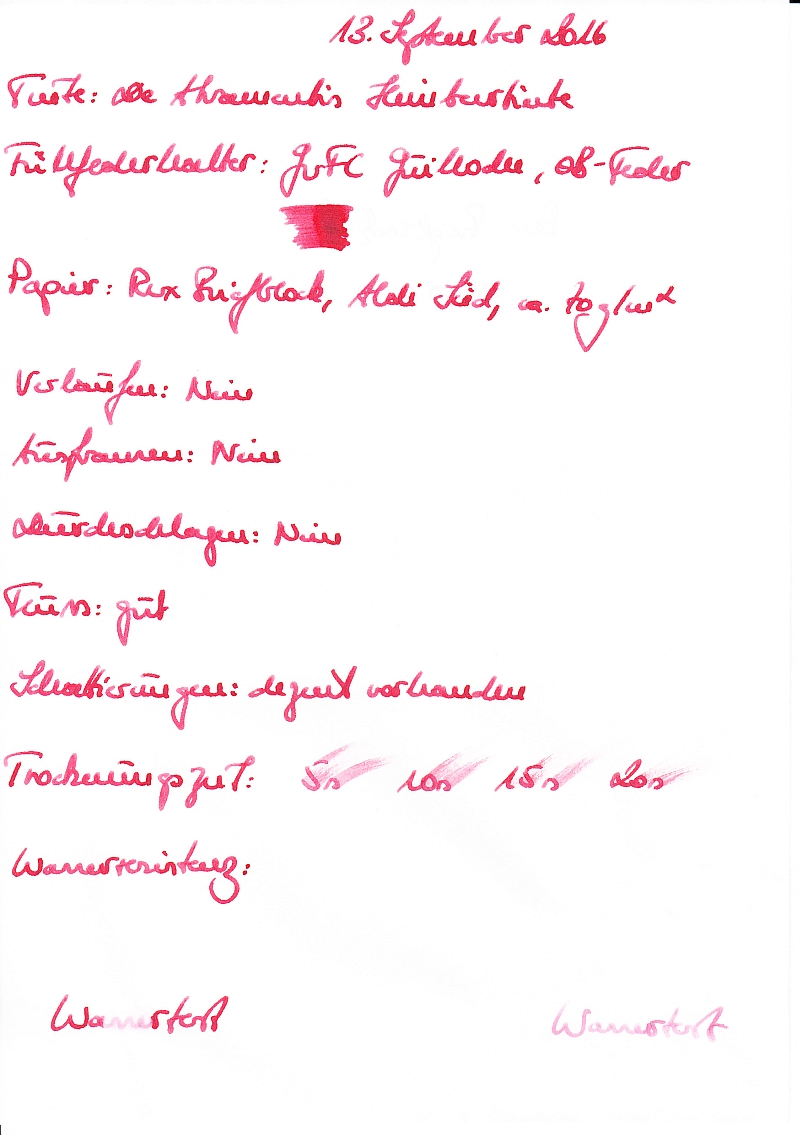 13. September 2016
Tinte: De Atramentis Himbeertinte
Füllfederhalter: GvFC Guilloche, OB-Feder
Papier: Rex Briefblock, Aldi Süd, ca. 70 g/m²
Verlaufen: Nein
Ausfransen: Nein
Durchschlagen: Nein
Fluss: gut
Schattierungen: dezent vorhanden
Trocknungszeit: 5s 10s 15s 20s
Wasserresistenz:
Wassertest Wassertest